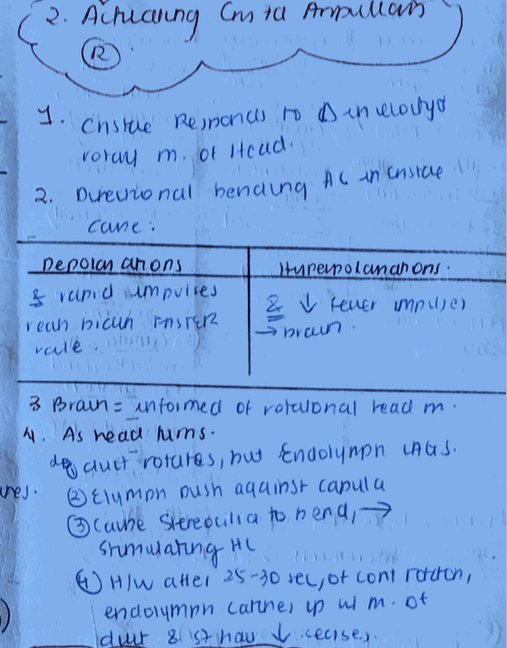 2. Actuating Crista Ampullaris
R
1. Cristae Responds to Δ in velocity of
rotary m. of Head.
2. Directional bending HC in cristae
cause:
Depolarizations
Hyperpolarizations.
& rapid impulses
reach brain FASTER
rate.
& ↓ fewer impulses
→ brain.
3 Brain = informed of rotational head m.
4. As head turns.
duct rotates, but Endolymph LAGS.
② Elymph push against cupula
③ Cause stereocilia to bend, →
stimulating HC
④ H/w after 25-30 sec, of cont rotation,
endolymph catches up w/ m. of
duct &